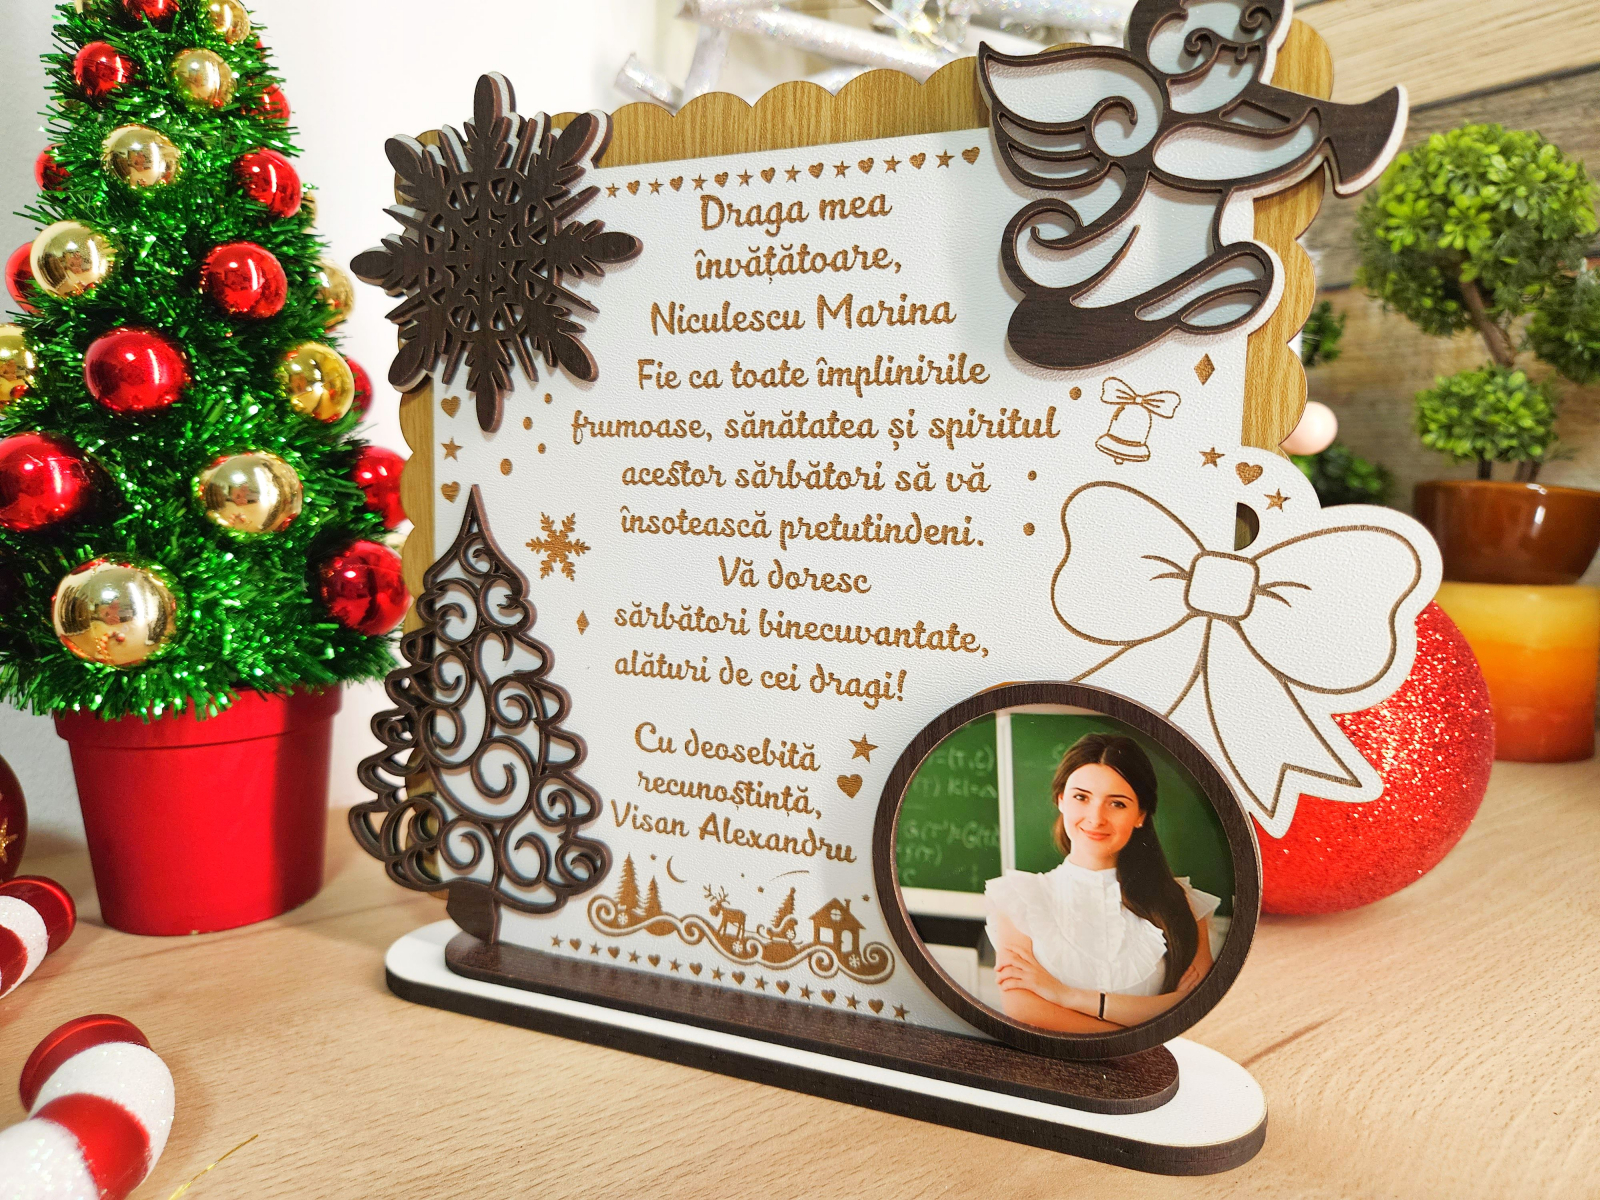 Draga mea
învățătoare,
Niculescu Marina
Fie ca toate împlinirile
frumoase, sănătatea și spiritul
acestor sărbători să vă
însotească pretutindeni.
Vă doresc
sărbători binecuvantate,
alături de cei dragi!
Cu deosebită
recunoștință,
Visan Alexandru